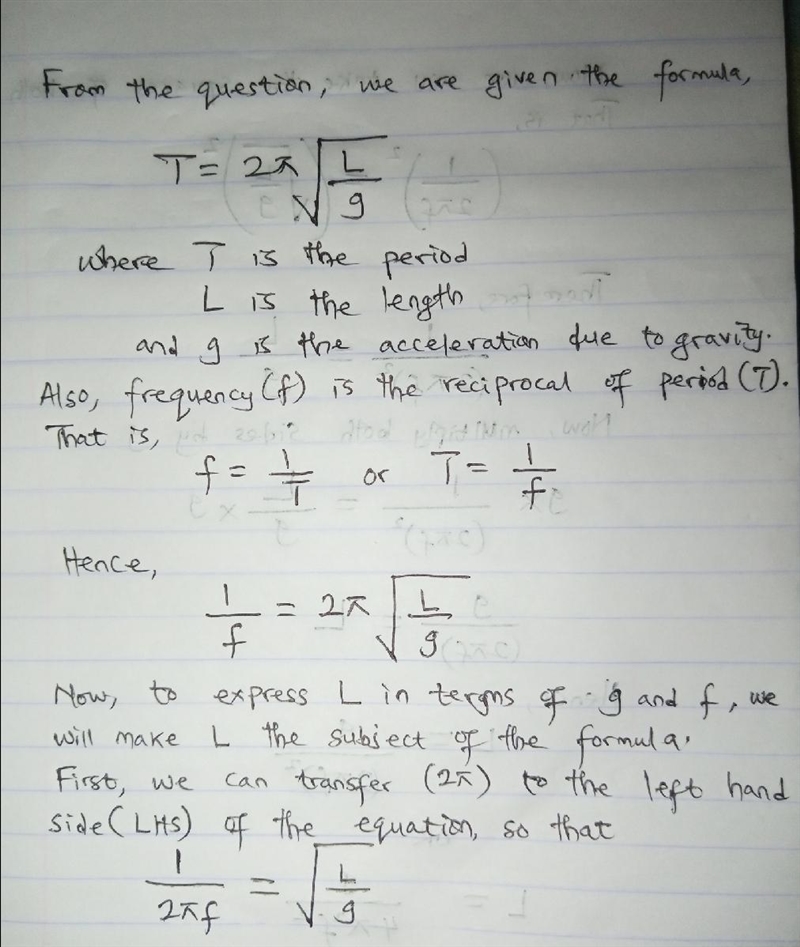 From the question, we are given the formula,
T = 2π √(L/g)
where T is the period
L is the length
and g is the acceleration due to gravity.
Also, frequency (f) is the reciprocal of period (T).
That is,
f = 1/T or T = 1/f
Hence,
1/f = 2π √(L/g)
Now, to express L in terms of g and f, we
will make L the subject of the formula.
First, we can transfer (2π) to the left hand
side (LHS) of the equation, so that
1/2πf = √(L/g)